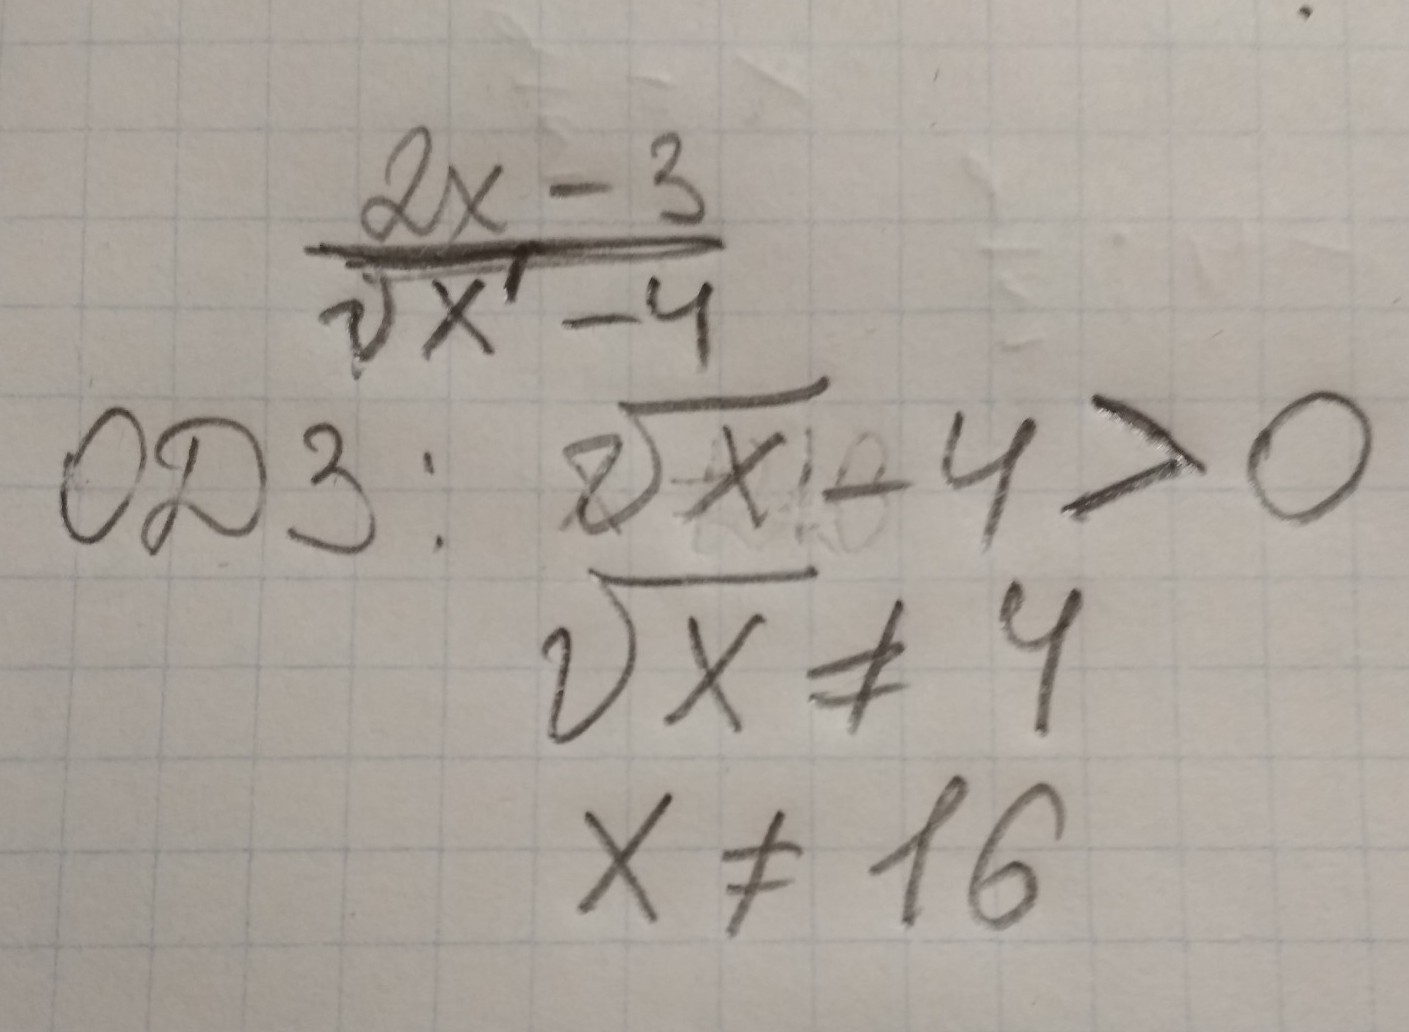 2x - 3
√x - 4
ОДЗ: √x - 4 > 0
√x ≠ 4
x ≠ 16